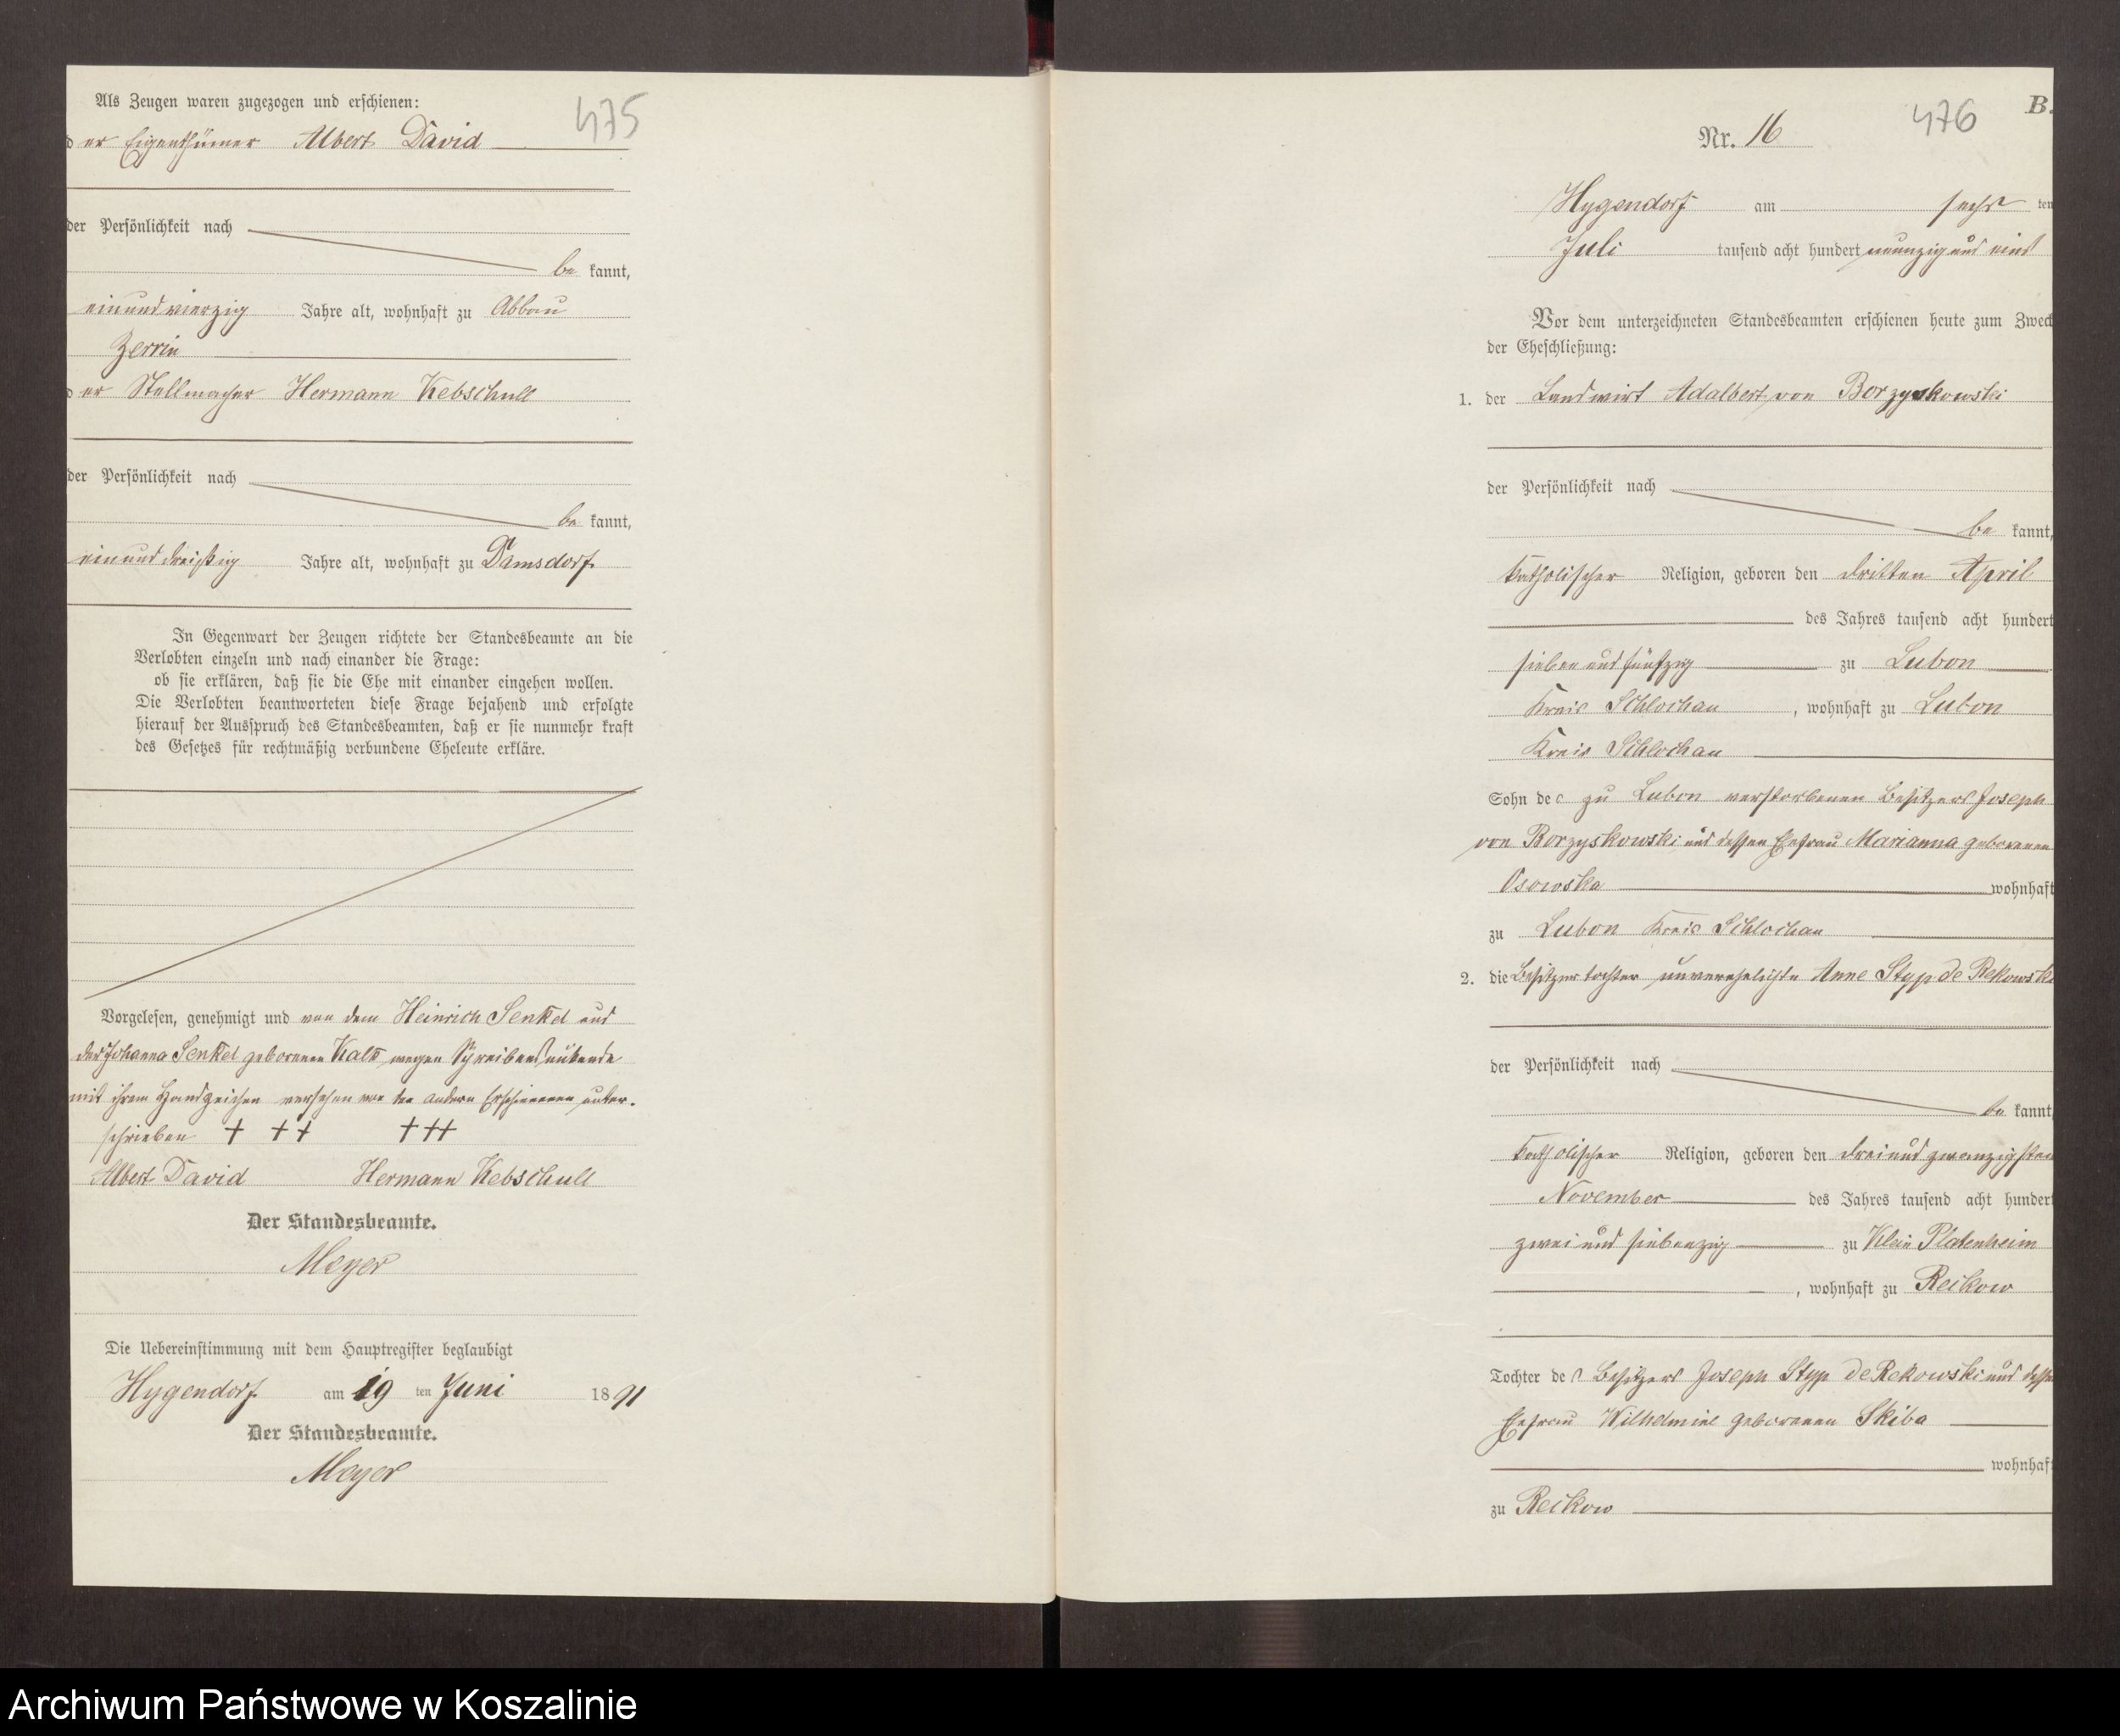 475
Als Zeugen waren zugezogen und erschienen:
der Eigenthümer Albert David
der Persönlichkeit nach
be kannt,
einundvierzig Jahre alt, wohnhaft zu Abbau
Zerrin
der Stellmacher Hermann Kebschull
der Persönlichkeit nach
be kannt,
einunddreißig Jahre alt, wohnhaft zu Damsdorf
In Gegenwart der Zeugen richtete der Standesbeamte an die
Verlobten einzeln und nach einander die Frage:
ob sie erklären, daß sie die Ehe mit einander eingehen wollen.
Die Verlobten beantworteten diese Frage bejahend und erfolgte
hierauf der Ausspruch des Standesbeamten, daß er sie nunmehr kraft
des Gesetzes für rechtmäßig verbundene Eheleute erkläre.
Vorgelesen, genehmigt und von dem Heinrich Senkel und
der Johanna Senkel geborenen wegen Schreibens
mit ihrem Handzeichen versehen von den andern Erschienenen unter-
schrieben + ++ +++
Albert David Hermann Kebschull
Der Standesbeamte.
Meyer
Die Uebereinstimmung mit dem Hauptregister beglaubigt
Hygendorf am 19 ten Juni 1891
Der Standesbeamte.
Meyer
B.
476
Nr. 16
Hygendorf am sechs ten
Juli tausend acht hundert neunzig und eins
Vor dem unterzeichneten Standesbeamten erschienen heute zum Zweck
der Eheschließung:
1. der Landwirt Adalbert von Borzyskowski
der Persönlichkeit nach
be kannt,
katholischer Religion, geboren den dritten April
des Jahres tausend acht hundert
sieben und fünfzig zu Lubon
Kreis Schlochau , wohnhaft zu Lubon
Kreis Schlochau
Sohn des zu Lubon verstorbenen Besitzers Joseph
von Borzyskowski und dessen Ehefrau Marianna geborenen
Osowska wohnhaft
zu Lubon Kreis Schlochau
2. die Besitzertochter unverehelichte Anne Styp de Rekowski
der Persönlichkeit nach
be kannt,
katholischer Religion, geboren den dreiundzwanzigsten
November des Jahres tausend acht hundert
zwei und siebenzig zu Klein Platenheim
, wohnhaft zu Reikow
Tochter des Besitzers Joseph Styp de Rekowski und dessen
Ehefrau Wilhelmine geborenen Skiba
wohnhaft
zu Reikow
Archiwum Państwowe w Koszalinie